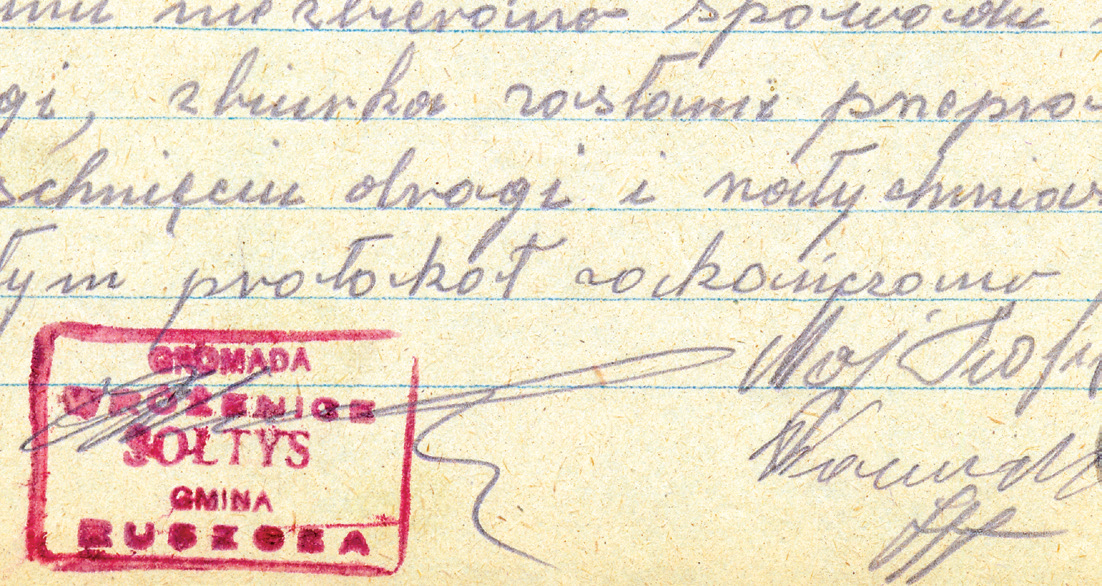 niezbierano spowodu
gi, zbiurka zostanie przepro
schnięciu drogi i natychmias
tym protokoł zakończono
GROMADA
WRÓŻENICE
SOŁTYS
GMINA
RUSZCZA